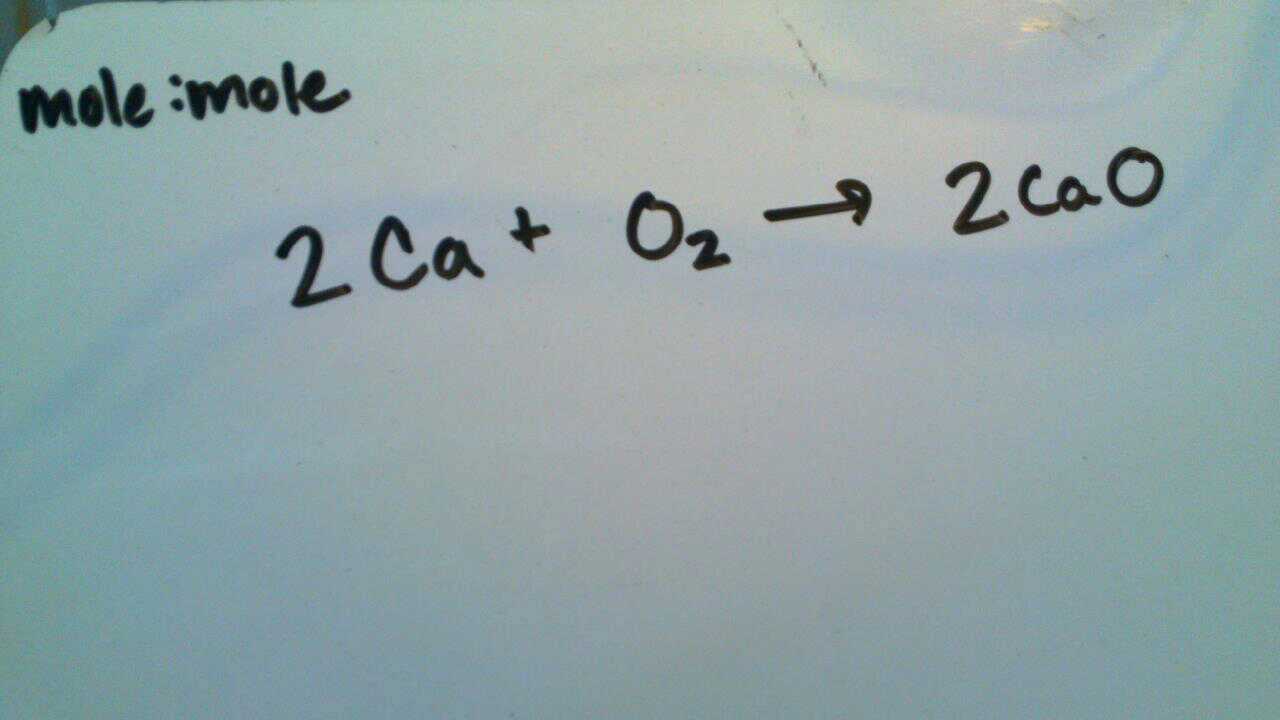 mole:mole
2Ca + O₂ → 2CaO